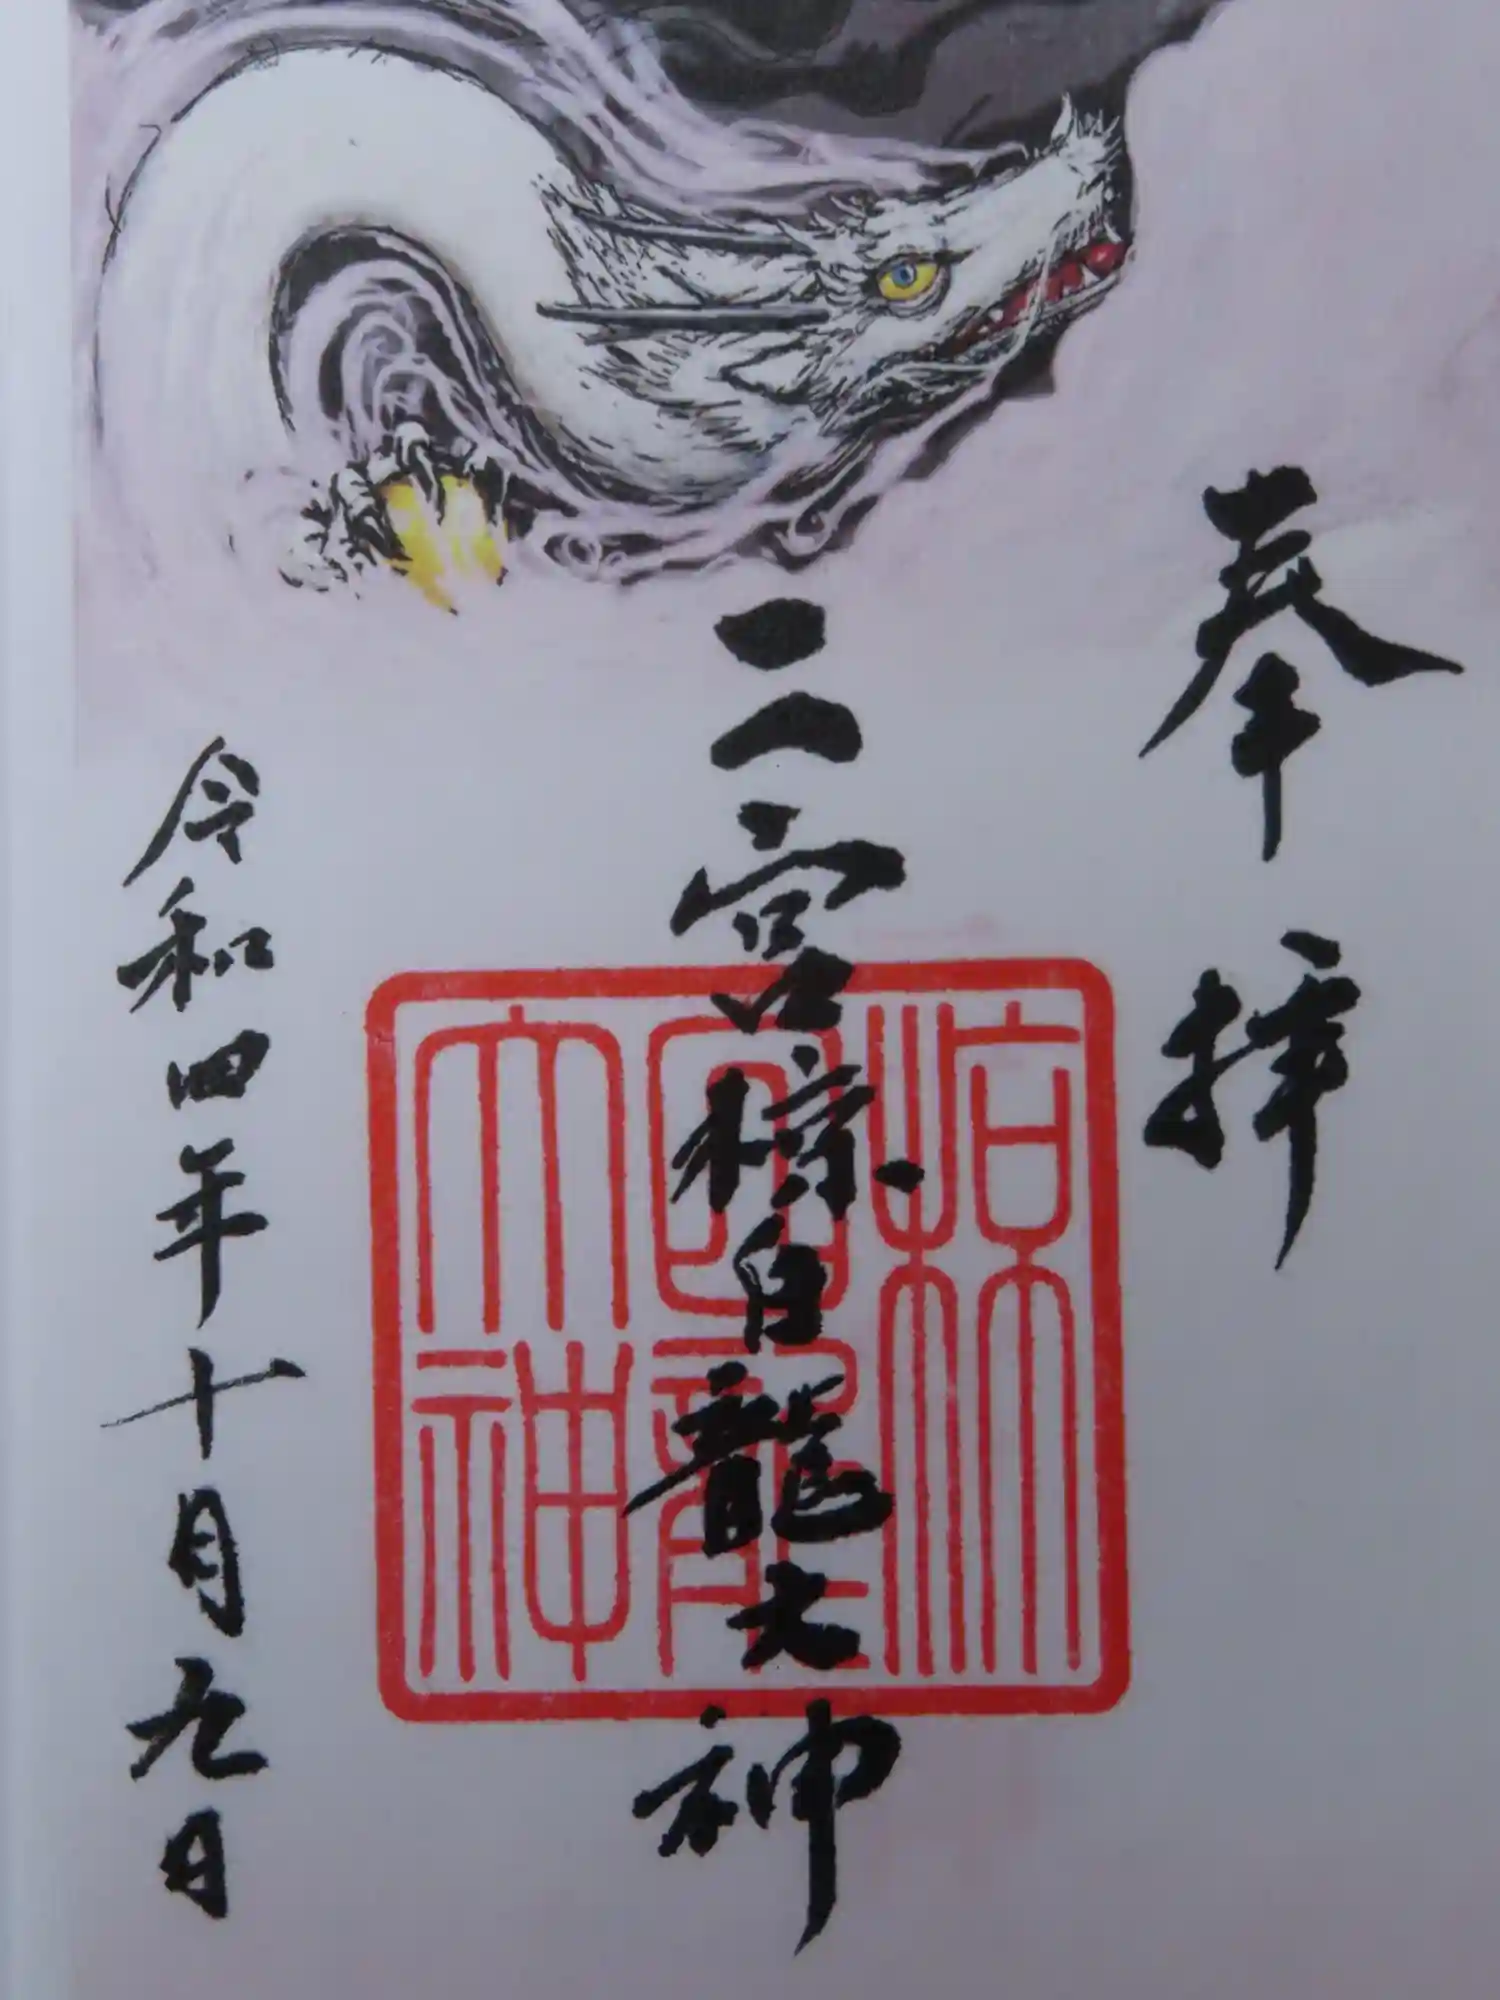 奉拝
二宮椋白龍大神
椋
白龍
大神
令和四年十月九日